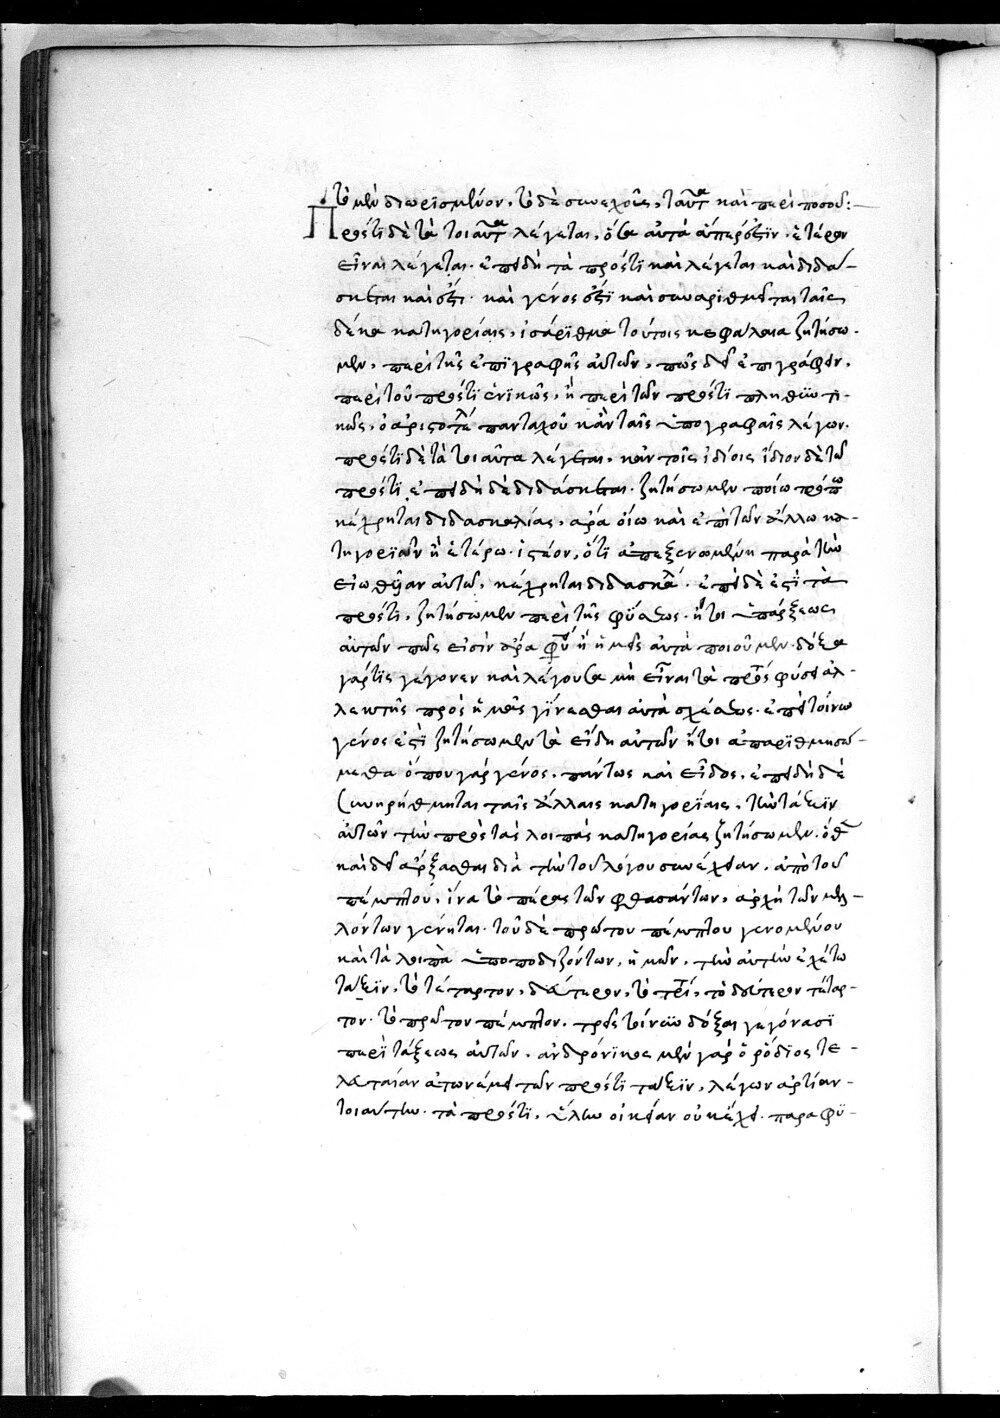 τὸ μὲν διωρισμένον, τὸ δὲ συνεχές, ταῦτα καὶ περὶ ποσοῦ:
Πρός τι δὲ τὰ τοιαῦτα λέγεται, ὅσα αὐτὰ ἅπερ ἐστὶν ἑτέρων
εἶναι λέγεται. ἐπειδὴ τὰ πρός τι καὶ λέγεται καὶ διδά-
σκεται καὶ ἔστι. καὶ γένος ἐστὶ καὶ συναριθμεῖται ταῖς
δέκα κατηγορίαις, ἰσάριθμα τούτοις κεφάλαια ζητήσω-
μεν, περὶ τῆς ἐπιγραφῆς αὐτῶν, πῶς δεῖ ἐπιγράφειν,
περὶ τοῦ πρός τι ἑνικῶς, ἢ περὶ τῶν πρός τι πληθυντι-
κῶς, ὁ ἀριστοτέλης πανταχοῦ κἀν ταῖς ὑπογραφαῖς λέγων.
πρός τι δὲ τὰ τοιαῦτα λέγεται, κἀν τοῖς ἰδίοις ἴδιον δὲ τῶν
πρός τι, ἐπειδὴ δὲ διδάσκεται. ζητήσωμεν ποίω τρόπω
κέχρηται διδασκαλίας, ἆρα οἵω καὶ ἐπὶ τῶν ἄλλων κα-
τηγοριῶν ἢ ἑτέρω. ἰστέον, ὅτι ἀπεξενωμένη παρὰ τὴν
εἰωθυῖαν αὐτῶ, κέχρηται διδασκαλία. ἐπεὶ δὲ ἐστὶ τὰ
πρός τι, ζητήσωμεν περὶ τῆς φύσεως. ἤτοι ὑπάρξεως
αὐτῶν πῶς εἰσὶν ἆρα φύσει ἢ ἡμεῖς αὐτὰ ποιοῦμεν. δόξα
γάρ τις γέγονεν καὶ λέγουσα μὴ εἶναι τὰ πρός τι φύσει ἀλ-
λ' ἐκ τῆς πρὸς ἡμᾶς γίνεσθαι αὐτὰ σχέσεως. ἐπεὶ τοίνυν
γένος ἐστὶ ζητήσωμεν τὰ εἴδη αὐτῶν ἤτοι ἀπαριθμησώ-
μεθα ὅπου γὰρ γένος, πάντως καὶ εἶδος, ἐπειδὴ δὲ
συνηρήθμηται ταῖς ἄλλαις κατηγορίαις, τὴν τάξιν
αὐτῶν τὴν πρὸς τὰς λοιπὰς κατηγορίας ζητήσωμεν. ὅθεν
καὶ δεῖ ἄρξασθαι διὰ τὴν τοῦ λόγου συνέχειαν, ἀπὸ τοῦ
πέμπτου, ἵνα τὸ πέρας τῶν φθασάντων, ἀρχὴ τῶν μελ-
λόντων γένηται. τοῦ δὲ πρώτου πέμπτου γενομένου
καὶ τὰ λοιπὰ ὑποποδιζόντων, ἡμῶν, τὴν αὐτὴν ἐχέτω
τάξιν, τὸ τέταρτον, δεύτερον, τὸ τρίτον, τὸ δεύτερον τέταρ-
τον. τὸ πρῶτον πέμπτον. τρεῖς τοίνυν δόξαι γεγόνασι
περὶ τάξεως αὐτῶν. ἀνδρόνικος μὲν γὰρ ὁ ῥόδιος τε-
λευταίαν ἀπονέμει τῶν πρός τι τάξιν, λέγων αἰτίαν
τοιαύτην. τὰ πρός τι, ὕλην οἰκείαν οὐκ ἔχει. παραφυ-